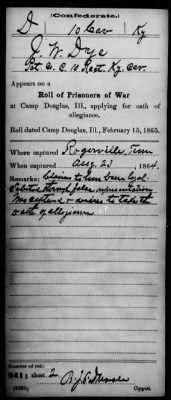 (Confederate.)
D 10 Cav Ky
J. W. Dye
Pvt Co. C. 10 Regt. Ky. Cav.
Appears on a
Roll of Prisoners of War
at Camp Douglas, Ill., applying for oath of
allegiance.
Roll dated Camp Douglas, Ill., February 15, 1865.
Where captured Rogersville, Tenn
When captured Aug. 23, 1864.
Remarks: Claims to have been loyal.
through false representations
was & desires to take the
oath of allegiance
Number of roll:
sheet 2
Copyist.